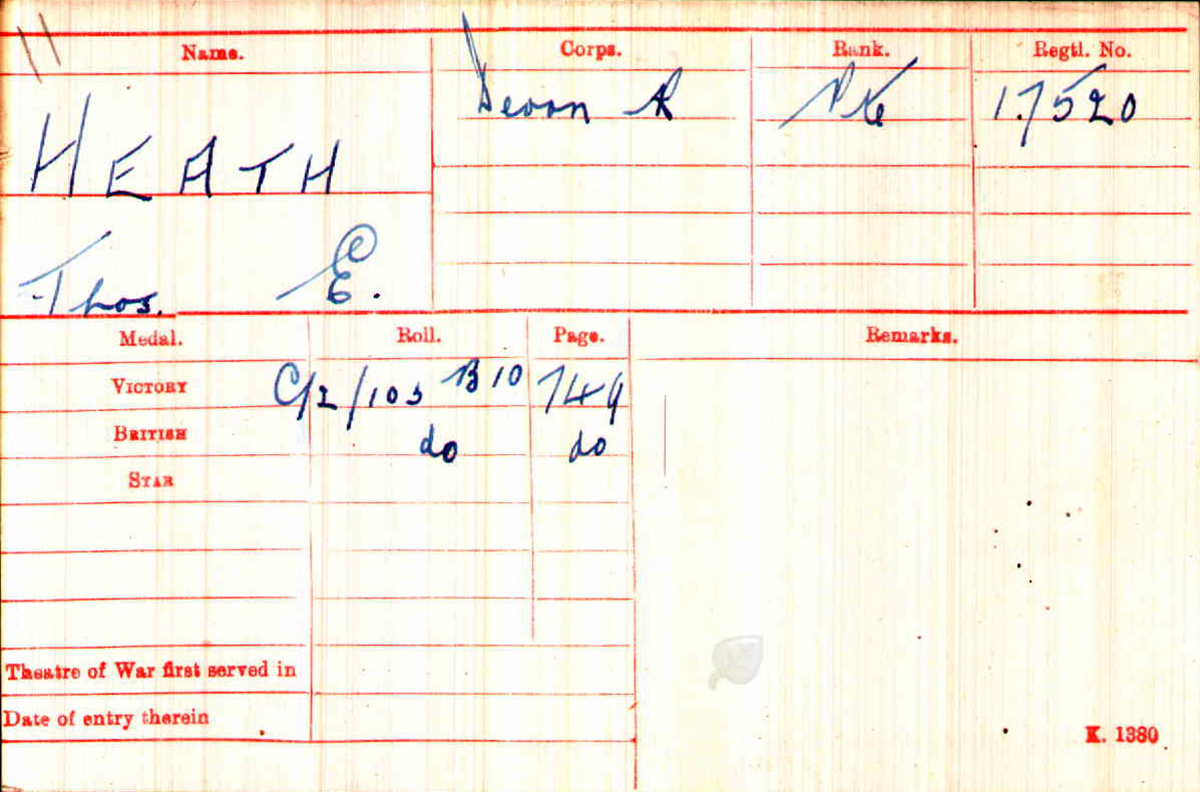 Name. Corps. Rank. Regtl. No.
HEATH Devon R Pte 17520
Thos. E.
Medal. Roll. Page. Remarks.
VICTORY C/2/103 B10 749
BRITISH do do
STAR
Theatre of War first served in
Date of entry therein
K. 1380